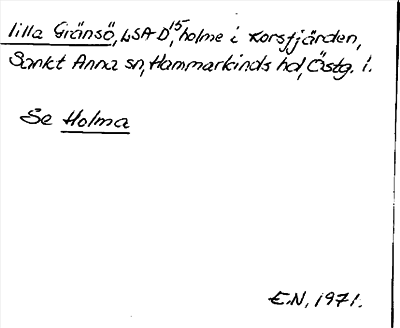 lilla Gränsö, LSA D 15, holme i Korsfjärden,
Sankt Anna sn, Hammarkinds hd, Östg. l.
Se Holma
E.N, 1971.